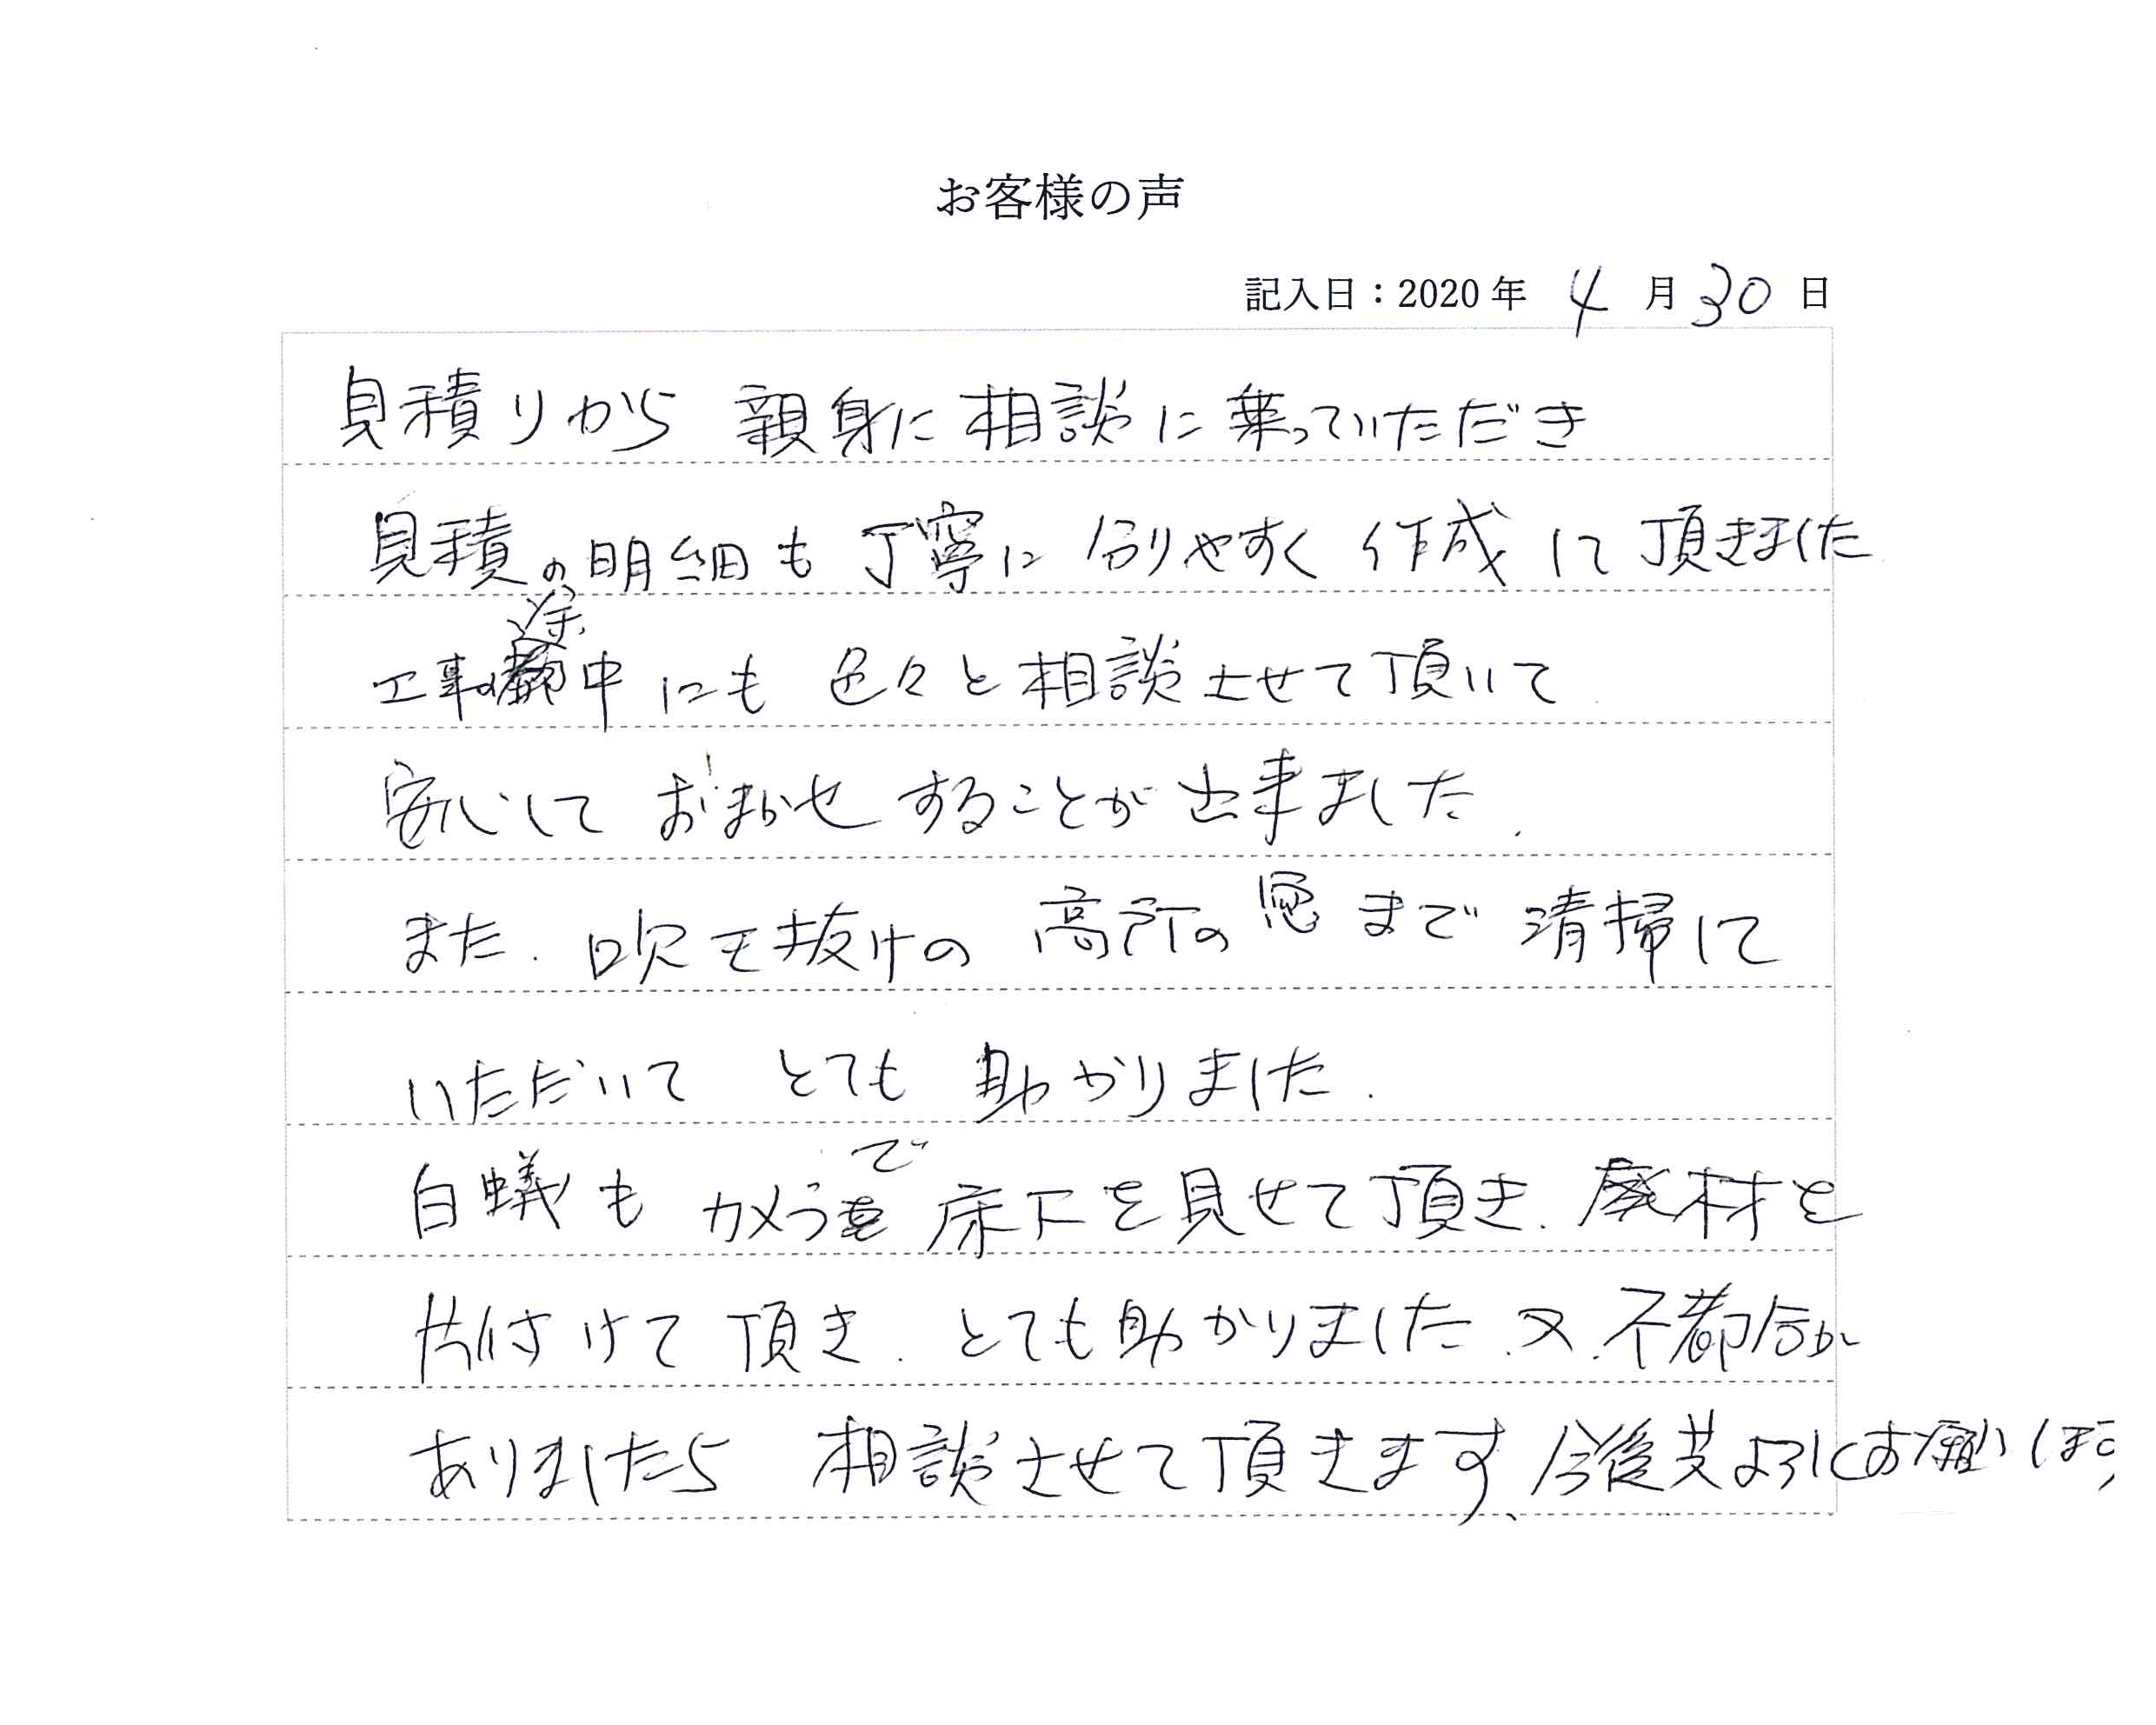 お客様の声
記入日：2020年 4月30日
見積りから 親身に相談に乗っていただき
見積の明細も丁寧に分りやすく作成して頂きました
工事の途中にも色々と相談させて頂いて
安心して おまかせすることが出来ました.
また.吹き抜けの高所の窓まで清掃して
いただいて とても助かりました.
白蟻もカメラで床下を見せて頂き.廃材を
片付けて頂き.とても助かりました.又.不都合が
ありましたら 相談させて頂きます、今後共よろしくお願いします